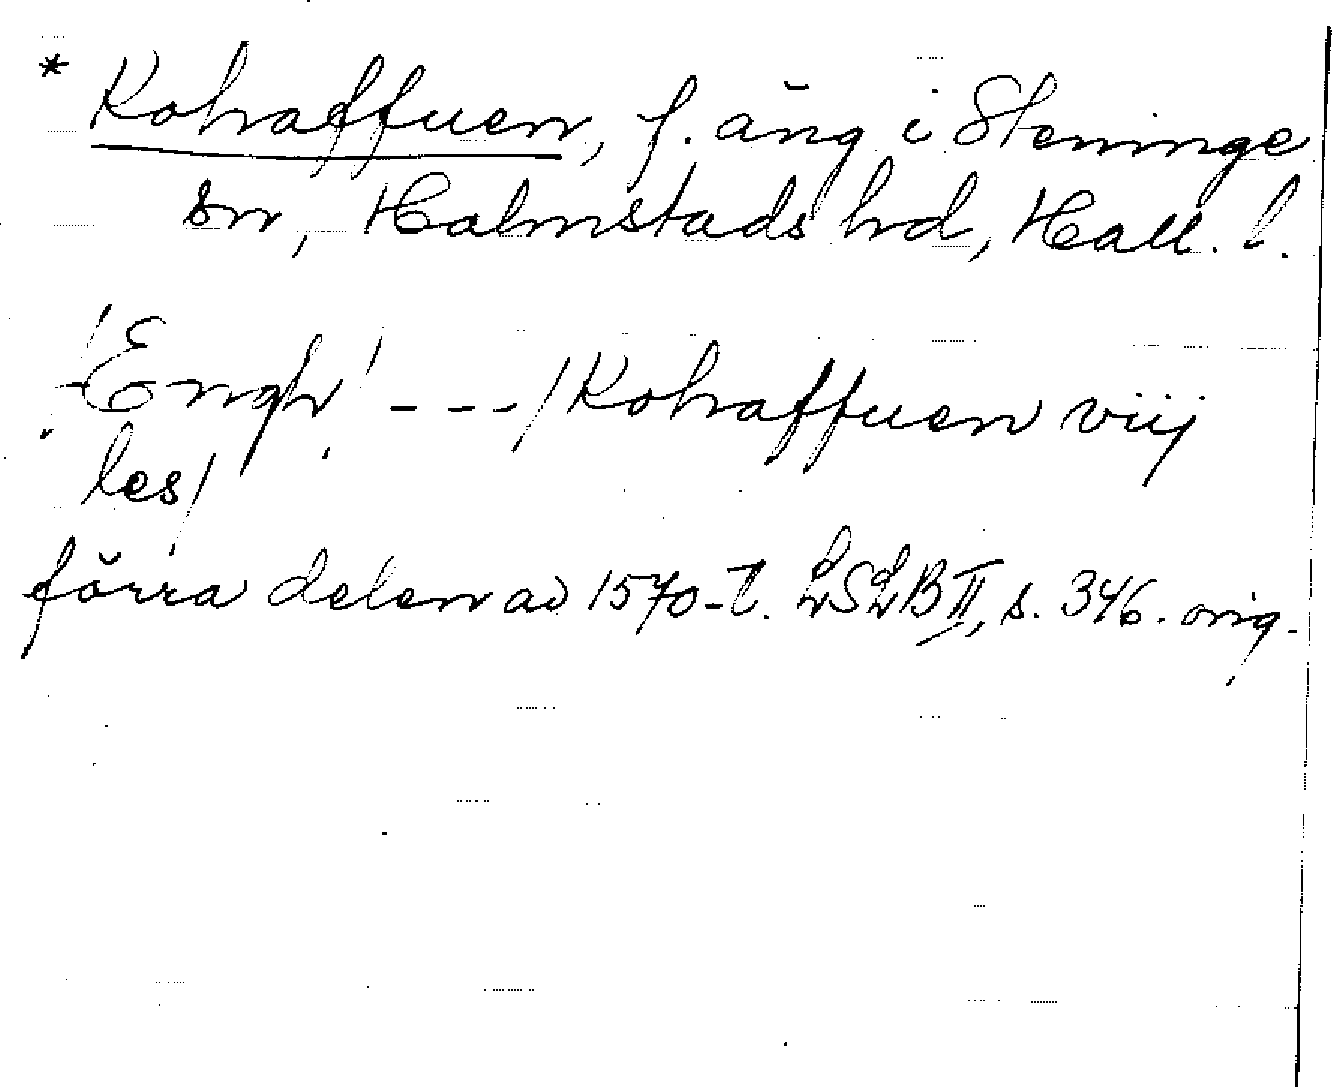 * Kohaffuen, f. äng i Steninge
sn, Halmstads hd, Hall. l.
'Engh' - - - / Kohaffuen viij
les /
förra delen av 1570-t. LSLB II, s. 346. orig.